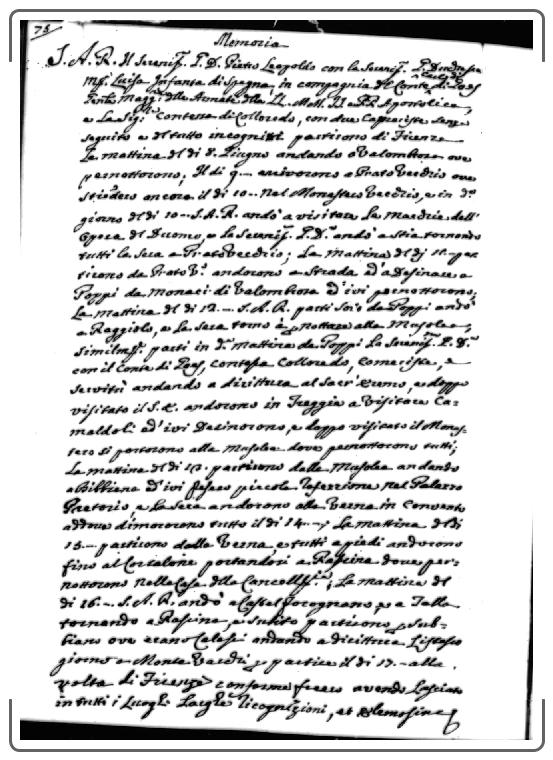 75
Memoria
S. A. R. Il Sereniss. P. D. Pietro Leopoldo con la Sereniss. P. Duchessa
Mª. Luisa Infanta di Spagna, in compagnia del Conte di
Magg. delle Armate delle LL. MM. II. e RR. Apostolica,
e la Sig. Contessa di Colloredo, con due Cameriste senza
seguito e del tutto incogniti partirono di Firenze
La mattina del di 8. Giugno andando a Valombrosa ove
pernottorono; Il di 9.– arrivorono a Prato Vecchio ove
stiedero ancora il di 10.– nel Monastero Vecchio, e in dº.
giorno del di 10.– S. A. R. andò a visitare la Macchia dell'
Opera di Duomo, e la Sereniss. P. Dª. andò a Stia tornando
tutti la sera a Prato Vecchio; La mattina del di 11.– par-
tirono da Prato Vº. andorono a Strada ed a Desinare a
Poppi da Monaci di Valombrosa ed ivi pernottorono;
La mattina del di 12.– S. A. R. partì da Poppi andò
a Raggiolo, e la sera tornò a pnottare alla Musolea,
similmte. partì in dª. mattina da Poppi la Sereniss. P. Dª.
con il Conte di Contessa Colloredo, Cameriste, e
servitù andando a dirittura al Sacr'Eremo, e doppo
visitato il S. E. andorono in a visitare Ca-
maldoli ed ivi Desinorono, e doppo visitato il Monas-
tero si portorono alla Musolea dove pernottorono tutti;
La mattina del di 13. partirono dalla Musolea andando
a Bibbiena ed ivi fecero piccola refezzione nel Palazzo
Pretorio, e la sera andorono alla Verna in Convento
addove dimororono tutto il di 14.–; La mattina del di
15.– partirono dalla Verna e tutti a piedi andorono
fino al Corsalone portandosi a Rassina dove per-
nottorono nella Casa della ; La mattina del
di 16.– S. A. R. andò a Castel Focognano, e a Talla
tornando a Rassina, e subito partirono p Sub-
biano ove erano Calessi andando a dirittura l'istesso
giorno a Monte Varchi p partire il di 17.– alla
volta di Firenze conforme fecero avendo lasciato
in tutti i Luoghi Larghe ricognizioni, et elemosine